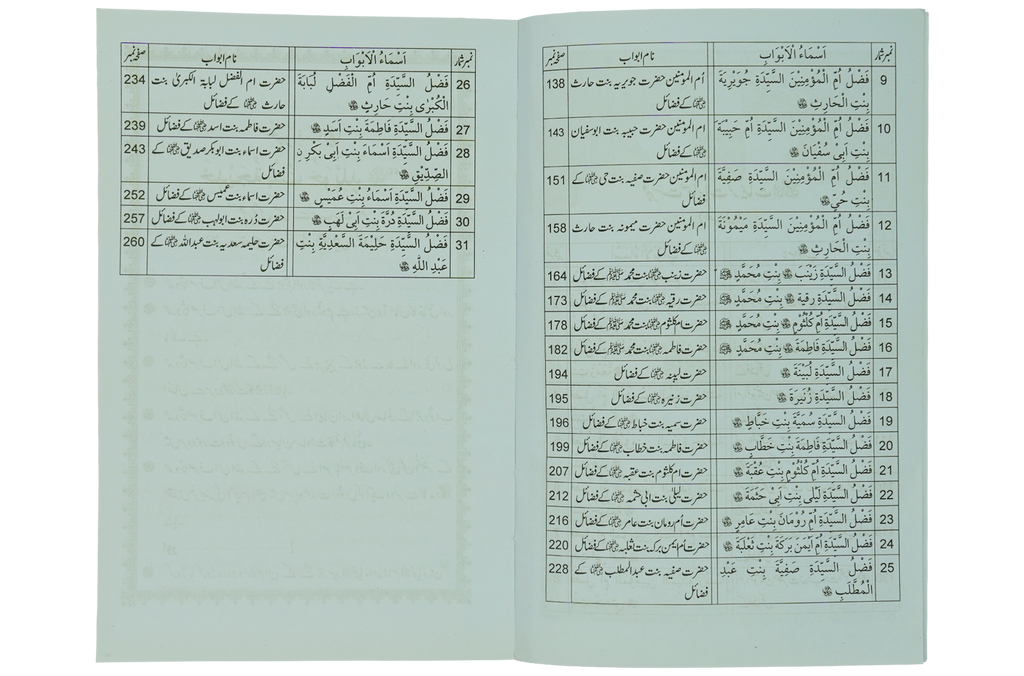 نمبر شمار اَسْمَاءُ الْاَبْوَابِ نام ابواب صفحہ نمبر
9 فَضْلُ اُمِّ الْمُؤْمِنِيْنَ السَّيِّدَةِ جُوَيْرِيَةَ اُم المومنین حضرت جویریہ بنت حارث 138
بِنْتِ الْحَارِثِ ؓ ؓ کے فضائل
10 فَضْلُ اُمِّ الْمُؤْمِنِيْنَ السَّيِّدَةِ اُمِّ حَبِيْبَةَ ام المومنین حضرت حبیبہ بنت ابوسفیان 143
بِنْتِ اَبِىْ سُفْيَانَ ؓ ؓ کے فضائل
11 فَضْلُ اُمِّ الْمُؤْمِنِيْنَ السَّيِّدَةِ صَفِيَّةَ ام المومنین حضرت صفیہ بنت حی ؓ کے 151
بِنْتِ حُيَىٍّ ؓ فضائل
12 فَضْلُ اُمِّ الْمُؤْمِنِيْنَ السَّيِّدَةِ مَيْمُوْنَةَ ام المومنین حضرت میمونہ بنت حارث 158
بِنْتِ الْحَارِثِ ؓ ؓ کے فضائل
13 فَضْلُ السَّيِّدَةِ زَيْنَبَ ؓ بِنْتِ مُحَمَّدٍ ﷺ حضرت زینب ؓ بنت محمد ﷺ کے فضائل 164
14 فَضْلُ السَّيِّدَةِ رقية ؓ بِنْتِ مُحَمَّدٍ ﷺ حضرت رقیہ ؓ بنت محمد ﷺ کے فضائل 173
15 فَضْلُ السَّيِّدَةِ اُمِّ كُلْثُوْمٍ ؓ بِنْتِ مُحَمَّدٍ ﷺ حضرت ام کلثوم ؓ بنت محمد ﷺ کے فضائل 178
16 فَضْلُ السَّيِّدَةِ فَاطِمَةَ ؓ بِنْتِ مُحَمَّدٍ ﷺ حضرت فاطمہ ؓ بنت محمد ﷺ کے فضائل 182
17 فَضْلُ السَّيِّدَةِ لُبَيْنَةَ ؓ حضرت لبینہ ؓ کے فضائل 194
18 فَضْلُ السَّيِّدَةِ زُنَيْرَةَ ؓ حضرت زنیرہ ؓ کے فضائل 195
19 فَضْلُ السَّيِّدَةِ سُمَيَّةَ بِنْتِ خَبَّاطٍ ؓ حضرت سمیہ بنت خباط ؓ کے فضائل 196
20 فَضْلُ السَّيِّدَةِ فَاطِمَةَ بِنْتِ خَطَّابٍ ؓ حضرت فاطمہ بنت خطاب ؓ کے فضائل 199
21 فَضْلُ السَّيِّدَةِ اُمِّ كُلْثُوْمٍ بِنْتِ عُقْبَةَ ؓ حضرت ام کلثوم بنت عقبہ ؓ کے فضائل 207
22 فَضْلُ السَّيِّدَةِ لَيْلٰى بِنْتِ اَبِىْ حَثْمَةَ ؓ حضرت لیلیٰ بنت ابی حثمہ ؓ کے فضائل 212
23 فَضْلُ السَّيِّدَةِ اُمِّ رُوْمَانَ بِنْتِ عَامِرٍ ؓ حضرت اُم رومان بنت عامر ؓ کے فضائل 216
24 فَضْلُ السَّيِّدَةِ اُمِّ اَيْمَنَ بَرَكَةَ بِنْتِ ثَعْلَبَةَ ؓ حضرت اُم ایمن برکہ بنت ثعلبہ ؓ کے فضائل 220
25 فَضْلُ السَّيِّدَةِ صَفِيَّةَ بِنْتِ عَبْدِ حضرت صفیہ بنت عبدالمطلب ؓ کے 228
الْمُطَّلَبِ ؓ فضائل
نمبر شمار اَسْمَاءُ الْاَبْوَابِ نام ابواب صفحہ نمبر
26 فَضْلُ السَّيِّدَةِ اُمِّ الْفَضْلِ لُبَابَةَ حضرت ام الفضل لبابۃ الکبریٰ بنت 234
الْكُبْرٰى بِنْتِ حَارِثٍ ؓ حارث ؓ کے فضائل
27 فَضْلُ السَّيِّدَةِ فَاطِمَةَ بِنْتِ اَسَدٍ ؓ حضرت فاطمہ بنت اسد ؓ کے فضائل 239
28 فَضْلُ السَّيِّدَةِ اَسْمَاءَ بِنْتِ اَبِىْ بَكْرِنِ حضرت اسماء بنت ابوبکر صدیق ؓ کے 243
الصِّدِّيْقِ ؓ فضائل
29 فَضْلُ السَّيِّدَةِ اَسْمَاءَ بِنْتِ عُمَيْسٍ ؓ حضرت اسماء بنت عمیس ؓ کے فضائل 252
30 فَضْلُ السَّيِّدَةِ دُرَّةَ بِنْتِ اَبِىْ لَهَبٍ ؓ حضرت دُرہ بنت ابولہب ؓ کے فضائل 257
31 فَضْلُ السَّيِّدَةِ حَلِيْمَةَ السَّعْدِيَّةِ بِنْتِ حضرت حلیمہ سعدیہ بنت عبداللہ ؓ کے 260
عَبْدِ اللّٰهِ ؓ فضائل